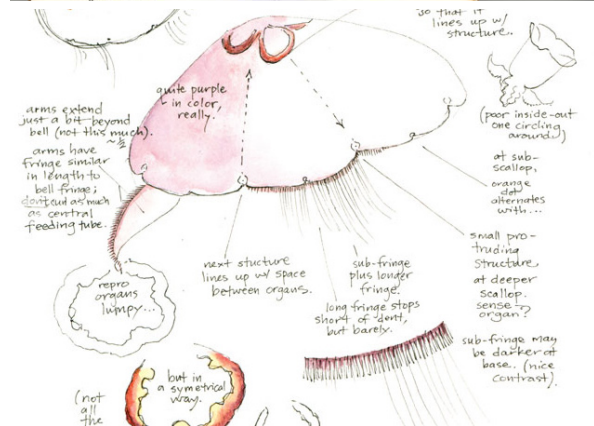 so that it
lines up w/
structure..
quite purple
in color,
really.
arms extend
just a bit beyond
bell (not this much).
~ 1/2
arms have
fringe similar
in length to
bell fringe;
don't end as much
as central
feeding tube.
(poor inside-out
one circling
around!)
at sub-
scallop,
orange
dot
alternates
with...
small pro-
truding
structure
at deeper
scallop.
sense
organ?
next stucture
lines up w/ space
between organs.
sub-fringe
plus longer
fringe.
long fringe stops
short of dent,
but barely.
repro
organs
lumpy...
sub-fringe may
be darker at
base.. (nice
contrast).
but in
a symetrical
way.
(not
all
the